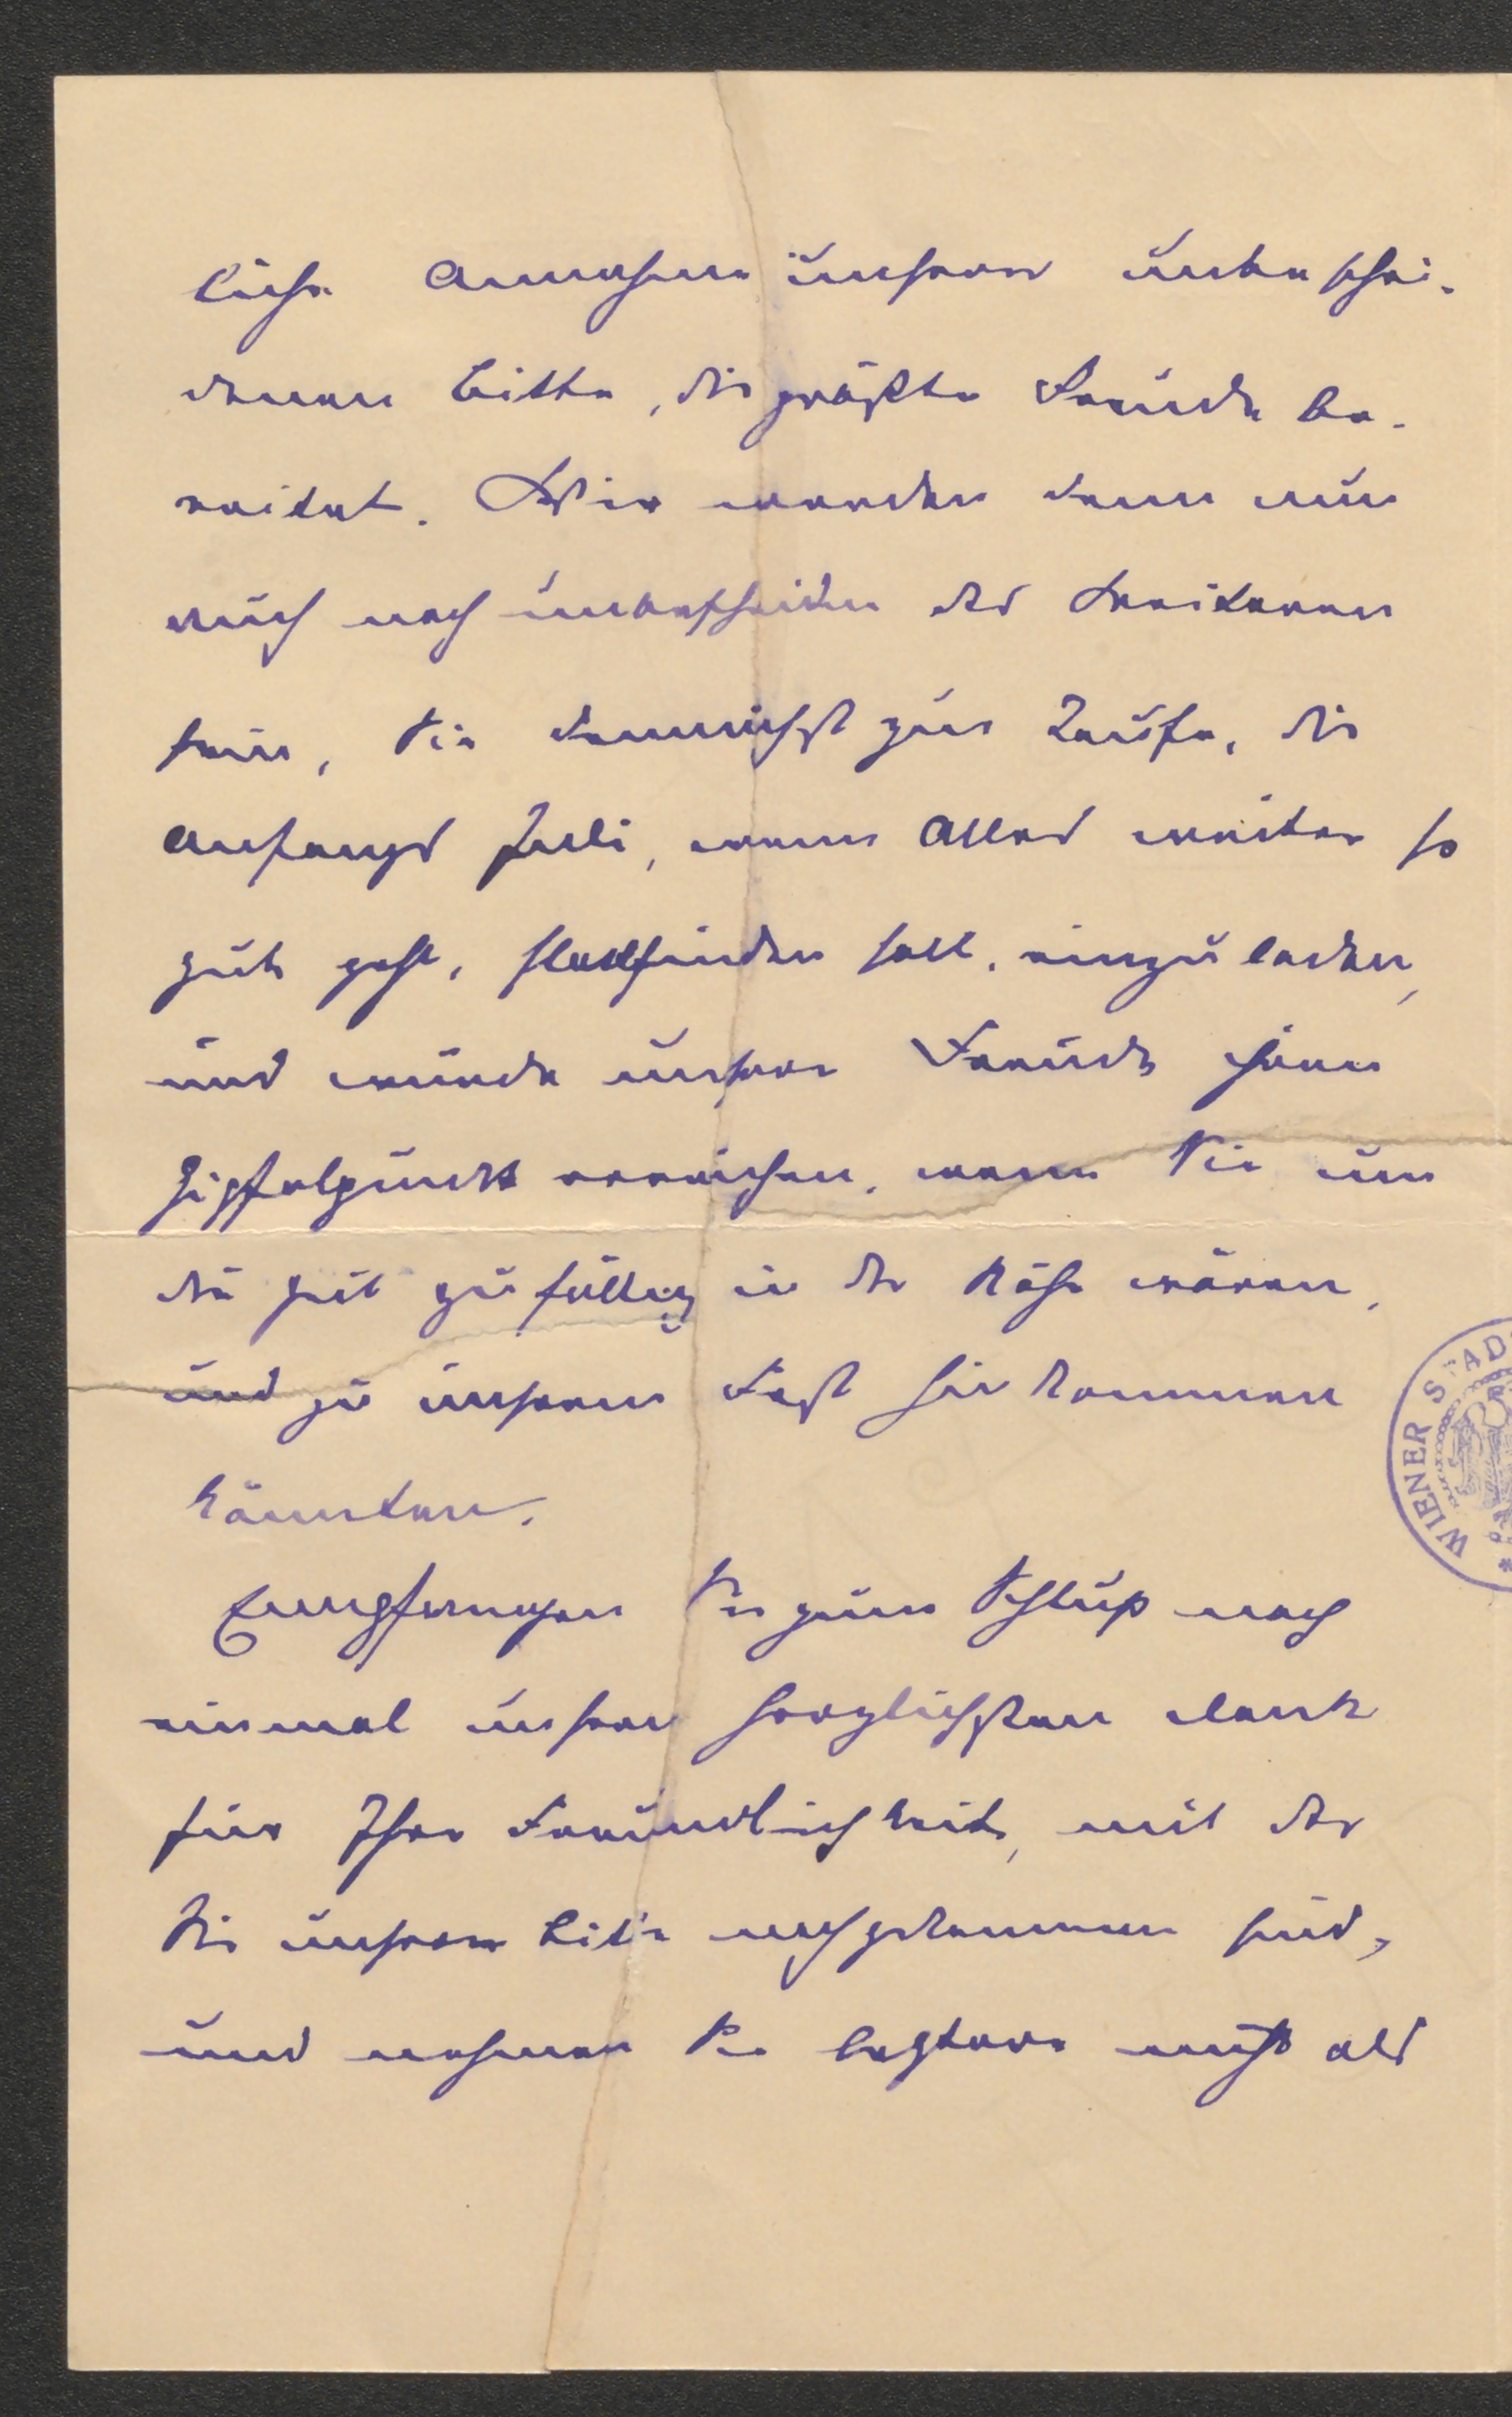 liche Annahme unserer unbeschei-
denen Bitte, die größte Freude be-
reitet. Wir werden denn nun
auch noch unbescheiden des Weiteren
sein, Sie demnächst zur Taufe, die
Anfangs Juli, wenn Alles weiter so
gut geht, stattfinden soll, einzuladen,
und würde unsere Freude ihren
Gipfelpunkt erreichen, wenn Sie um
die Zeit zufällig in der Nähe wären,
und zu unserem Fest hinkommen
könnten.
Empfangen Sie zum Schluß noch
einmal unseren herzlichsten Dank
für Ihre Freundlichkeit, mit der
Sie unserer Bitte nachgekommen sind,
und nehmen Sie letztere nicht als
WIENER STAD